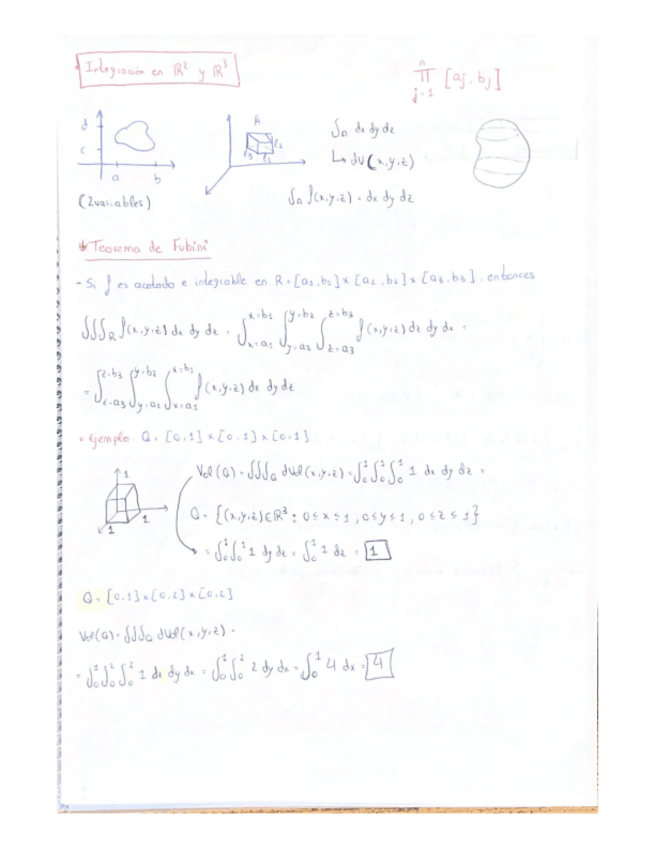 Integración en ℝ² y ℝ³
n
∏ [aj, bj]
j=1
d
c
a b
A
l3 l1 l2
∫Ω dx dy dz
↳ dV(x,y,z)
(2variables)
∫Ω f(x,y,z) · dx dy dz
* Teorema de Fubini
- Si f es acotado e integrable en R=[a1,b1]×[a2,b2]×[a3,b3], entonces
∭R f(x,y,z) dx dy dz = ∫x=a1^x=b1 ∫y=a2^y=b2 ∫z=a3^z=b3 f(x,y,z) dz dy dx =
= ∫z=a3^z=b3 ∫y=a2^y=b2 ∫x=a1^x=b1 f(x,y,z) dx dy dz
• Ejemplo: Q = [0,1]×[0,1]×[0,1]
1
1
1
Vol(Q) = ∭Q dVol(x,y,z) = ∫0^1 ∫0^1 ∫0^1 1 dx dy dz =
Q = {(x,y,z)∈ℝ³ : 0≤x≤1, 0≤y≤1, 0≤z≤1}
= ∫0^1 ∫0^1 1 dy dz = ∫0^1 1 dz = 1
Q = [0,1]×[0,2]×[0,2]
Vol(Q) = ∭Q dVol(x,y,z) =
= ∫0^1 ∫0^2 ∫0^2 1 dz dy dx = ∫0^1 ∫0^2 2 dy dx = ∫0^1 4 dx = 4